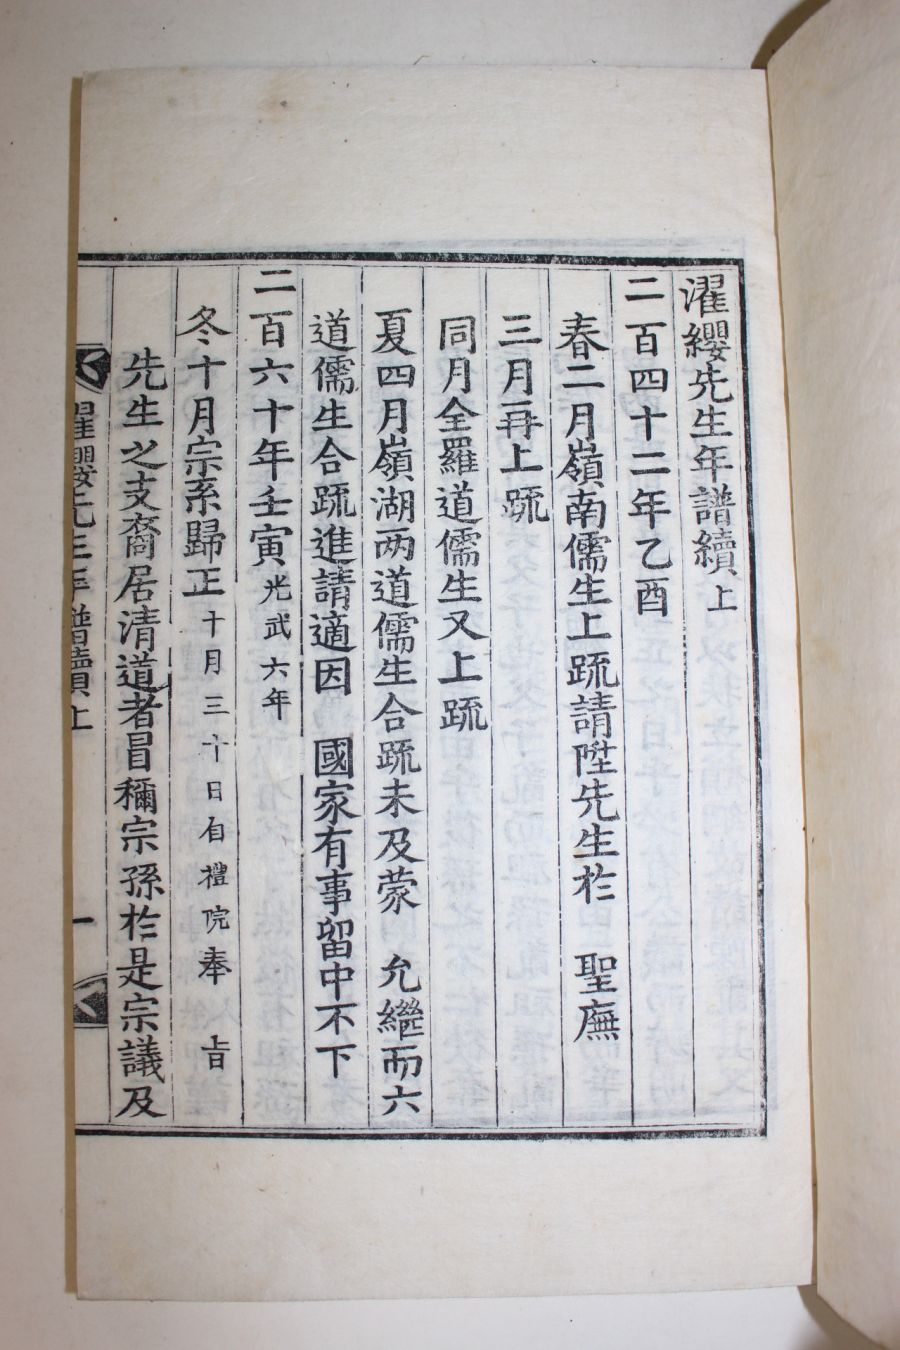 濯纓先生年譜續上
二百四十二年乙酉
春二月嶺南儒生上疏請陞先生於　聖廡
三月再上疏
同月全羅道儒生又上疏
夏四月嶺湖兩道儒生合疏未及蒙　允繼而六
道儒生合疏進請適因　國家有事留中不下
二百六十年壬寅光武六年
冬十月宗系歸正十月三十日自禮院奉　旨
先生之支裔居清道者冒稱宗孫於是宗議及
濯纓先生年譜續上　一